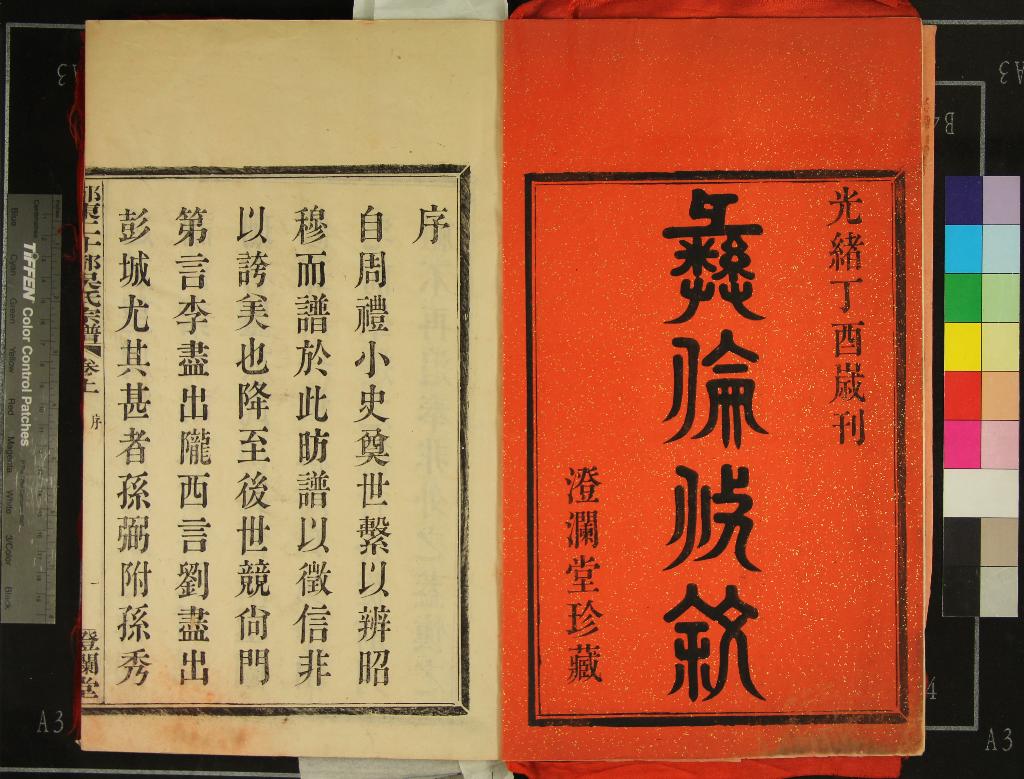 光緒丁酉歲刊
彝倫攸敘
澄瀾堂珍藏
序
自周禮小史奠世繫以辨昭
穆而譜於此昉譜以徵信非
以誇美也降至後世競尙門
第言李盡出隴西言劉盡出
彭城尤其甚者孫弼附孫秀
吳氏宗譜 卷上 序 一 澄瀾堂
TIFFEN Color Control Patches
Blue Cyan Green Yellow Red Magenta White 3/Color Black
A3
A3
A3
A3
B4
4